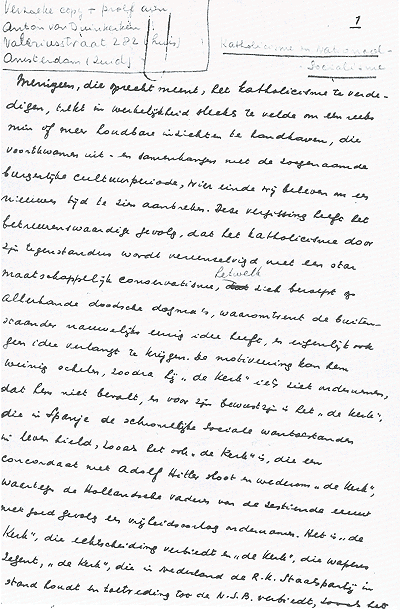 Verzoeke copy + proef aan
Anton van Duinkerken
Valeriusstraat 282 (huis)
Amsterdam (Zuid)
1
Katholicisme en Nationaal-
Socialisme
Menigeen, die oprecht meent, het katholicisme te verde-
digen, trekt in werkelijkheid slechts te velde om een reeks
min of meer houdbare inzichten te handhaven, die
voortkwamen uit - en samenhangen met de zoogenaamde
burgerlijke cultuurperiode, wier einde wij beleven om een
nieuwen tijd te zien aanbreken. Deze vergissing heeft het
betreurenswaardige gevolg, dat het katholicisme door
zijn tegenstanders wordt vereenzelvigd met een star
maatschappelijk conservatisme, hetwelk zich beroept op
allerhande doodsche dogma's, waaromtrent de buiten-
staander nauwelijks eenig idee heeft, en eigenlijk ook
geen idee verlangt te krijgen. De motiveering kan hem
weinig schelen, zoodra hij „de Kerk" iets ziet ondernemen,
dat hem niet bevalt, en voor zijn bewustzijn is het „de Kerk",
die in Spanje de schromelijke sociale wantoestanden
in leven hield, zooals het ook „de Kerk" is, die een
concordaat met Adolf Hitler sloot en wederom „de Kerk",
waartegen de Hollandsche vaderen van de zestiende eeuw
met goed gevolg een vrijheidsoorlog ondernamen. Het is „de
Kerk", die echtscheiding verbiedt en „de Kerk", die wapenen
zegent, „de Kerk", die in Nederland de R.K. Staatspartij in
stand houdt en toetreding tot de N.S.B. verbiedt, zooals het